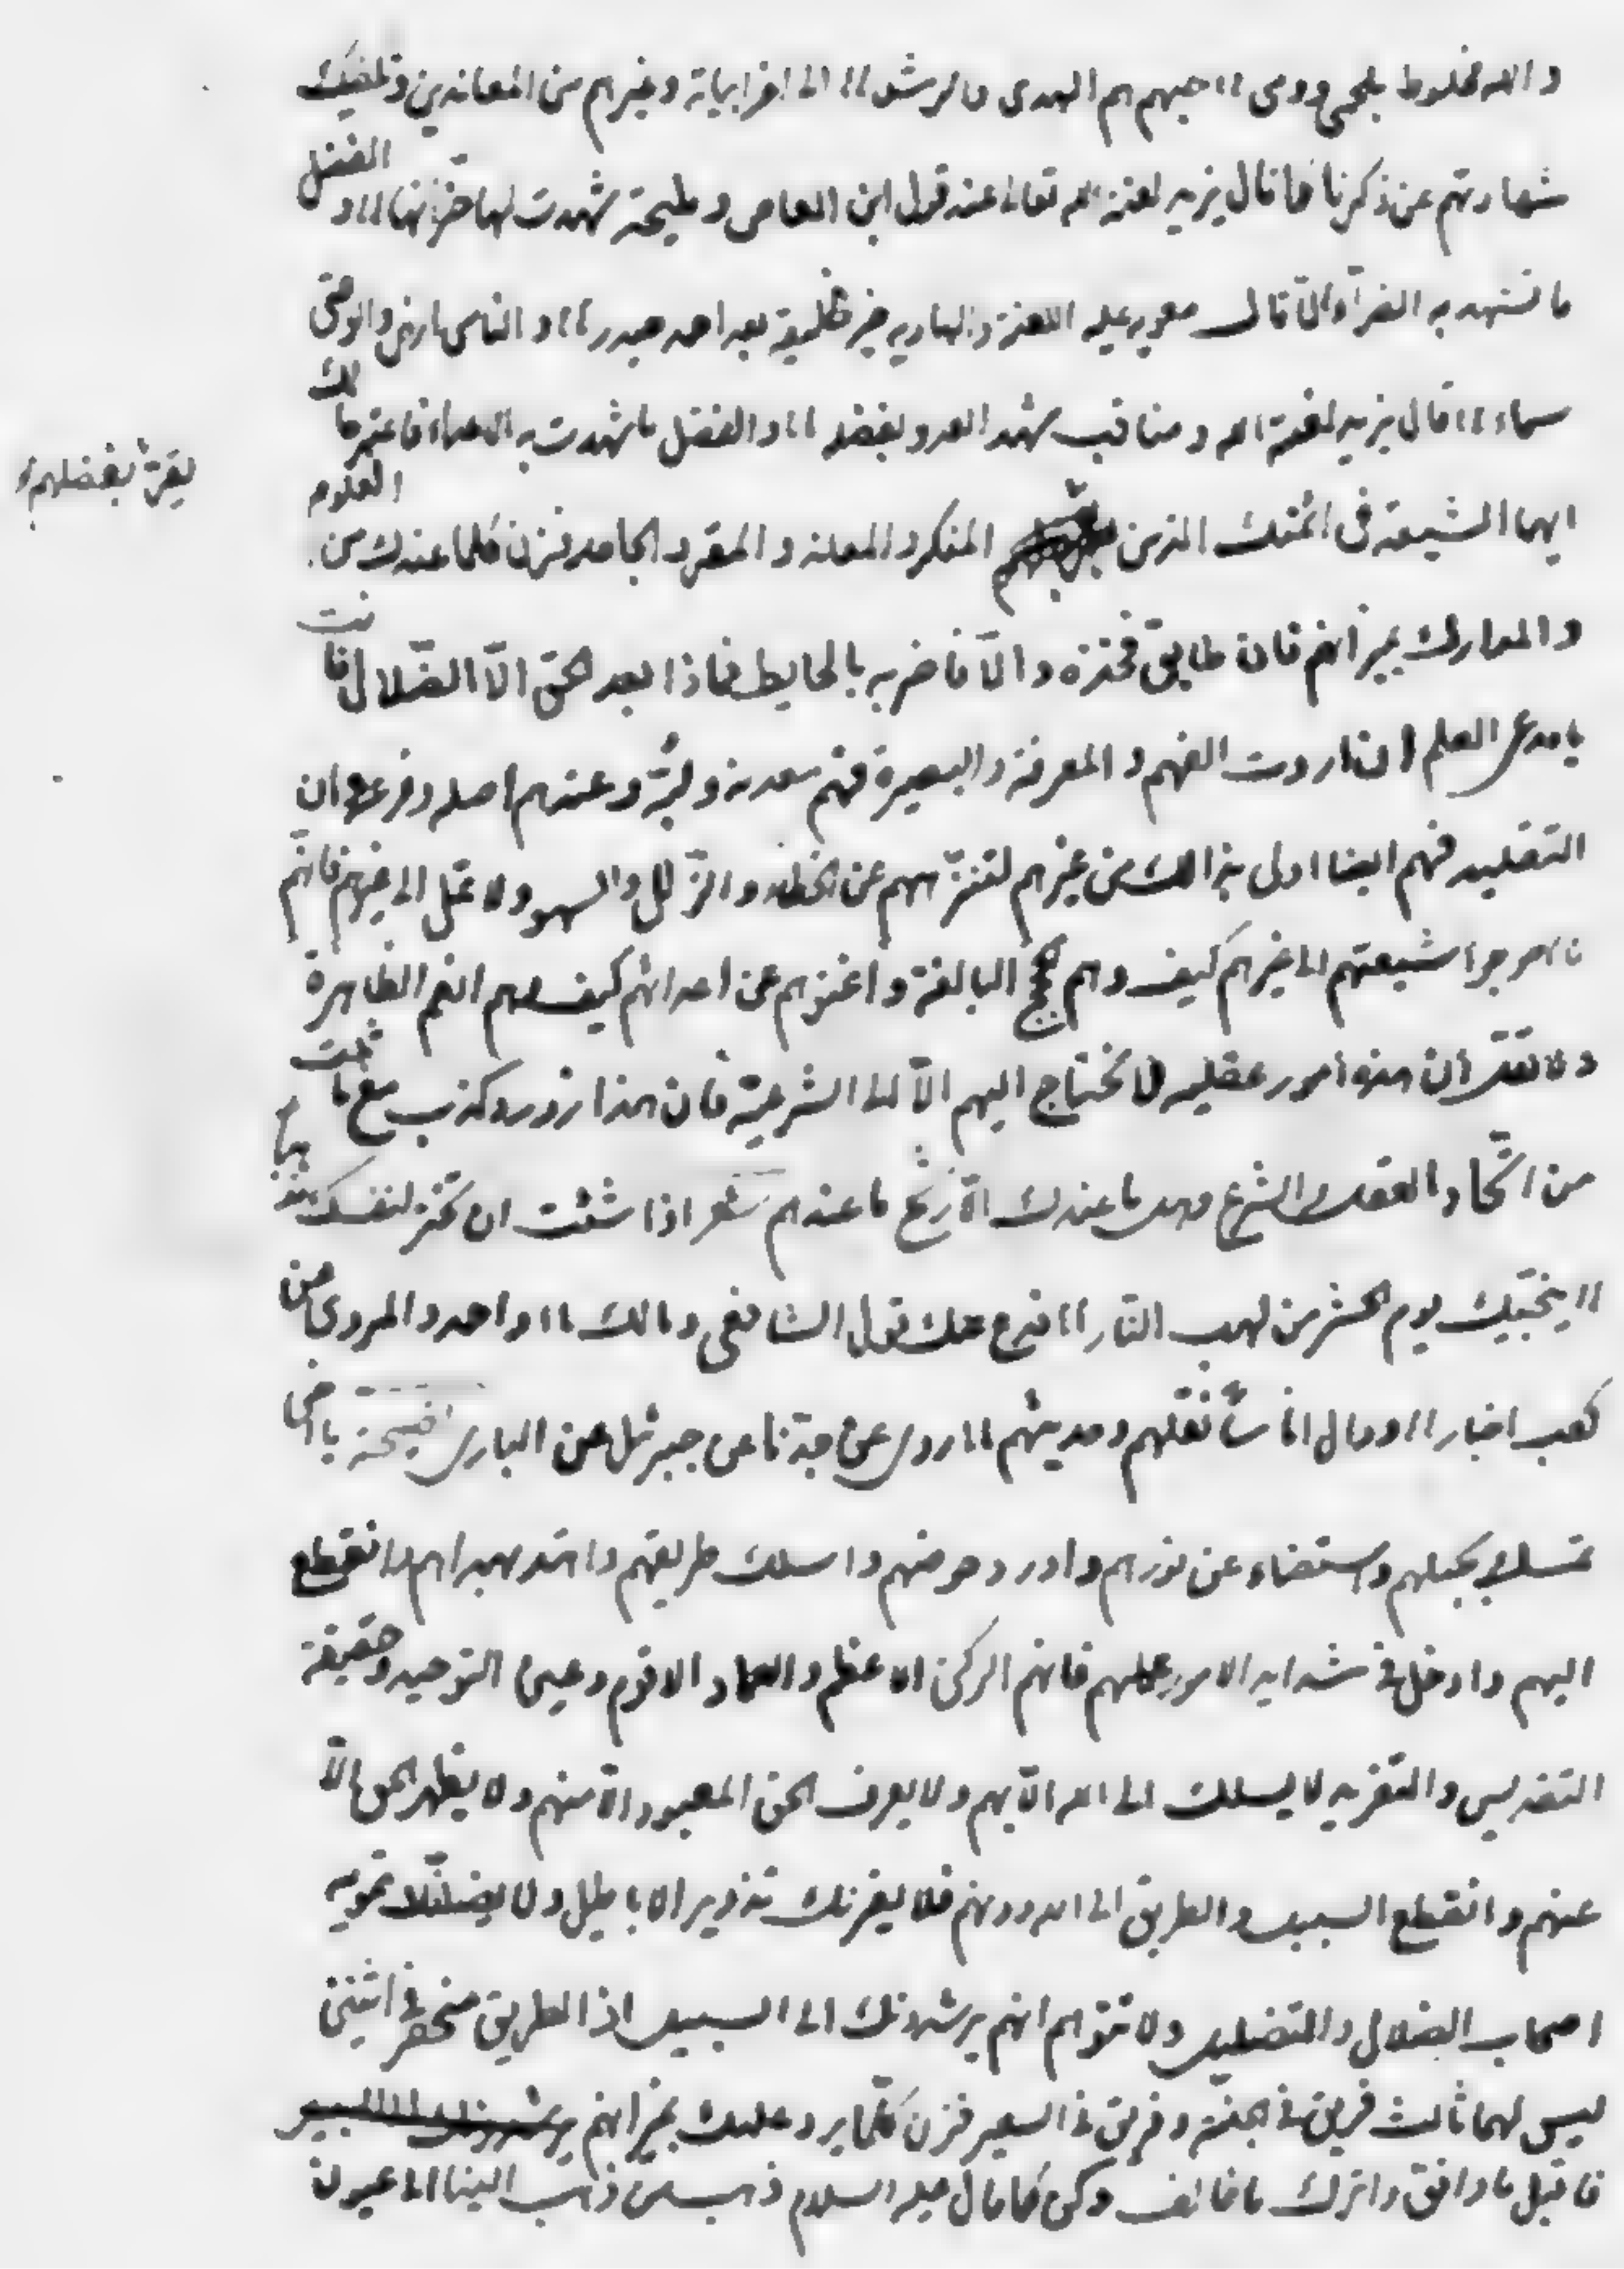 والله مخلوط بلحمي ودمي ١١ حبهم هم الهدى والرشد ١١ الى اخر ابياته وغيرهم من المعاندين وتكفيك
شهادتهم عن ذكرنا فما قال يزيد لعنه الله تعالى عند قول ابن العاص ومليحة شهدت لها ضراتها ١١ والفضل
ما تشهد به الضرآء الى قال معويه عليه اللعنة والهاويه خير خليقة بعد احمد حيدر ١١ والناس ارض والوصى
سماء ١١ قال يزيد لعنه الله ومناقب شهد العدو بفضله ١١ والفضل ما شهدت به الاعداء فاعتبر مالك
ايها الشيعة فى ائمتك الذين يقرّ بفضلهم المنكر والمعاند والمقر والجاحد فزن كلما عندك من العلوم
والمدارك بميزانهم فان طابق فخذه والّا فاضربه بالحايط فماذا بعد الحق الّا الضّلال فانت
يا مدعى العلم ان اردت الفهم والمعرفة والبصيرة فهم معدنه وعندهم اصله وفرعه وان
التقليد فهم ايضا اولى بذالك من غيرهم لتنزّههم عن الخطاء والزّلل والسهو ولا تمل الى غيرهم فانّهم
ما احوجوا شيعتهم الى غيرهم كيف وهم الحجج البالغة واغنوهم عن اعدائهم كيف وهم النعم الظاهرة
ولا تقل ان هذه امور عقليه لا نحتاج اليهم الّا الى الشرعيّة فان هذا زور وكذب مع ما ثبت
من اتّحاد العقل والشرع وهل ما عندك الّا رشح ما عندهم شعر اذا شئت ان تختر لنفسك مذهباً
١١ ينجّيك يوم الحشر من لهب النّار ١١ فدع عنك قول الشافعى ومالك ١١ واحمد والمروى من
كعب احبار ١١ ووال اناساً نقلهم وحديثهم ١١ روى عن جدّنا عن جبرئيل عن البارى نصيحة يا اخى
تمسك بحبلهم واستضاء عن نورهم واورد حوضهم واسلك طريقهم واهتد بهداهم وانقطع
اليهم وادخل فى شدايد الامور عليهم فانهم الركن الاعظم والعماد الاقوم وعين التوحيد وحقيقة
التقديس والتفريد لا يسلك الى الله الّا بهم ولا يعرف الحق المعبود الّا منهم ولا يظهر الحق الّا
عنهم وانقطع السبيل والطريق الى الله دونهم فلا يغرنك تزوير الاباطيل ولا يضلنّك تمويه
اصحاب الضلال والتضليل ولا تتوهم انهم يرشدونك الى السبيل اذ الطريق منحصر فى اثنين
ليس لهما ثالث فريق فى الجنّة وفريق فى السعير فزن كلّما يرد عليك بميزانهم
فاقبل ما وافق واترك ما خالف وكن كما قال عليه السلام ذهب من ذهب الينا الى عيون
يقرّ بفضلهم